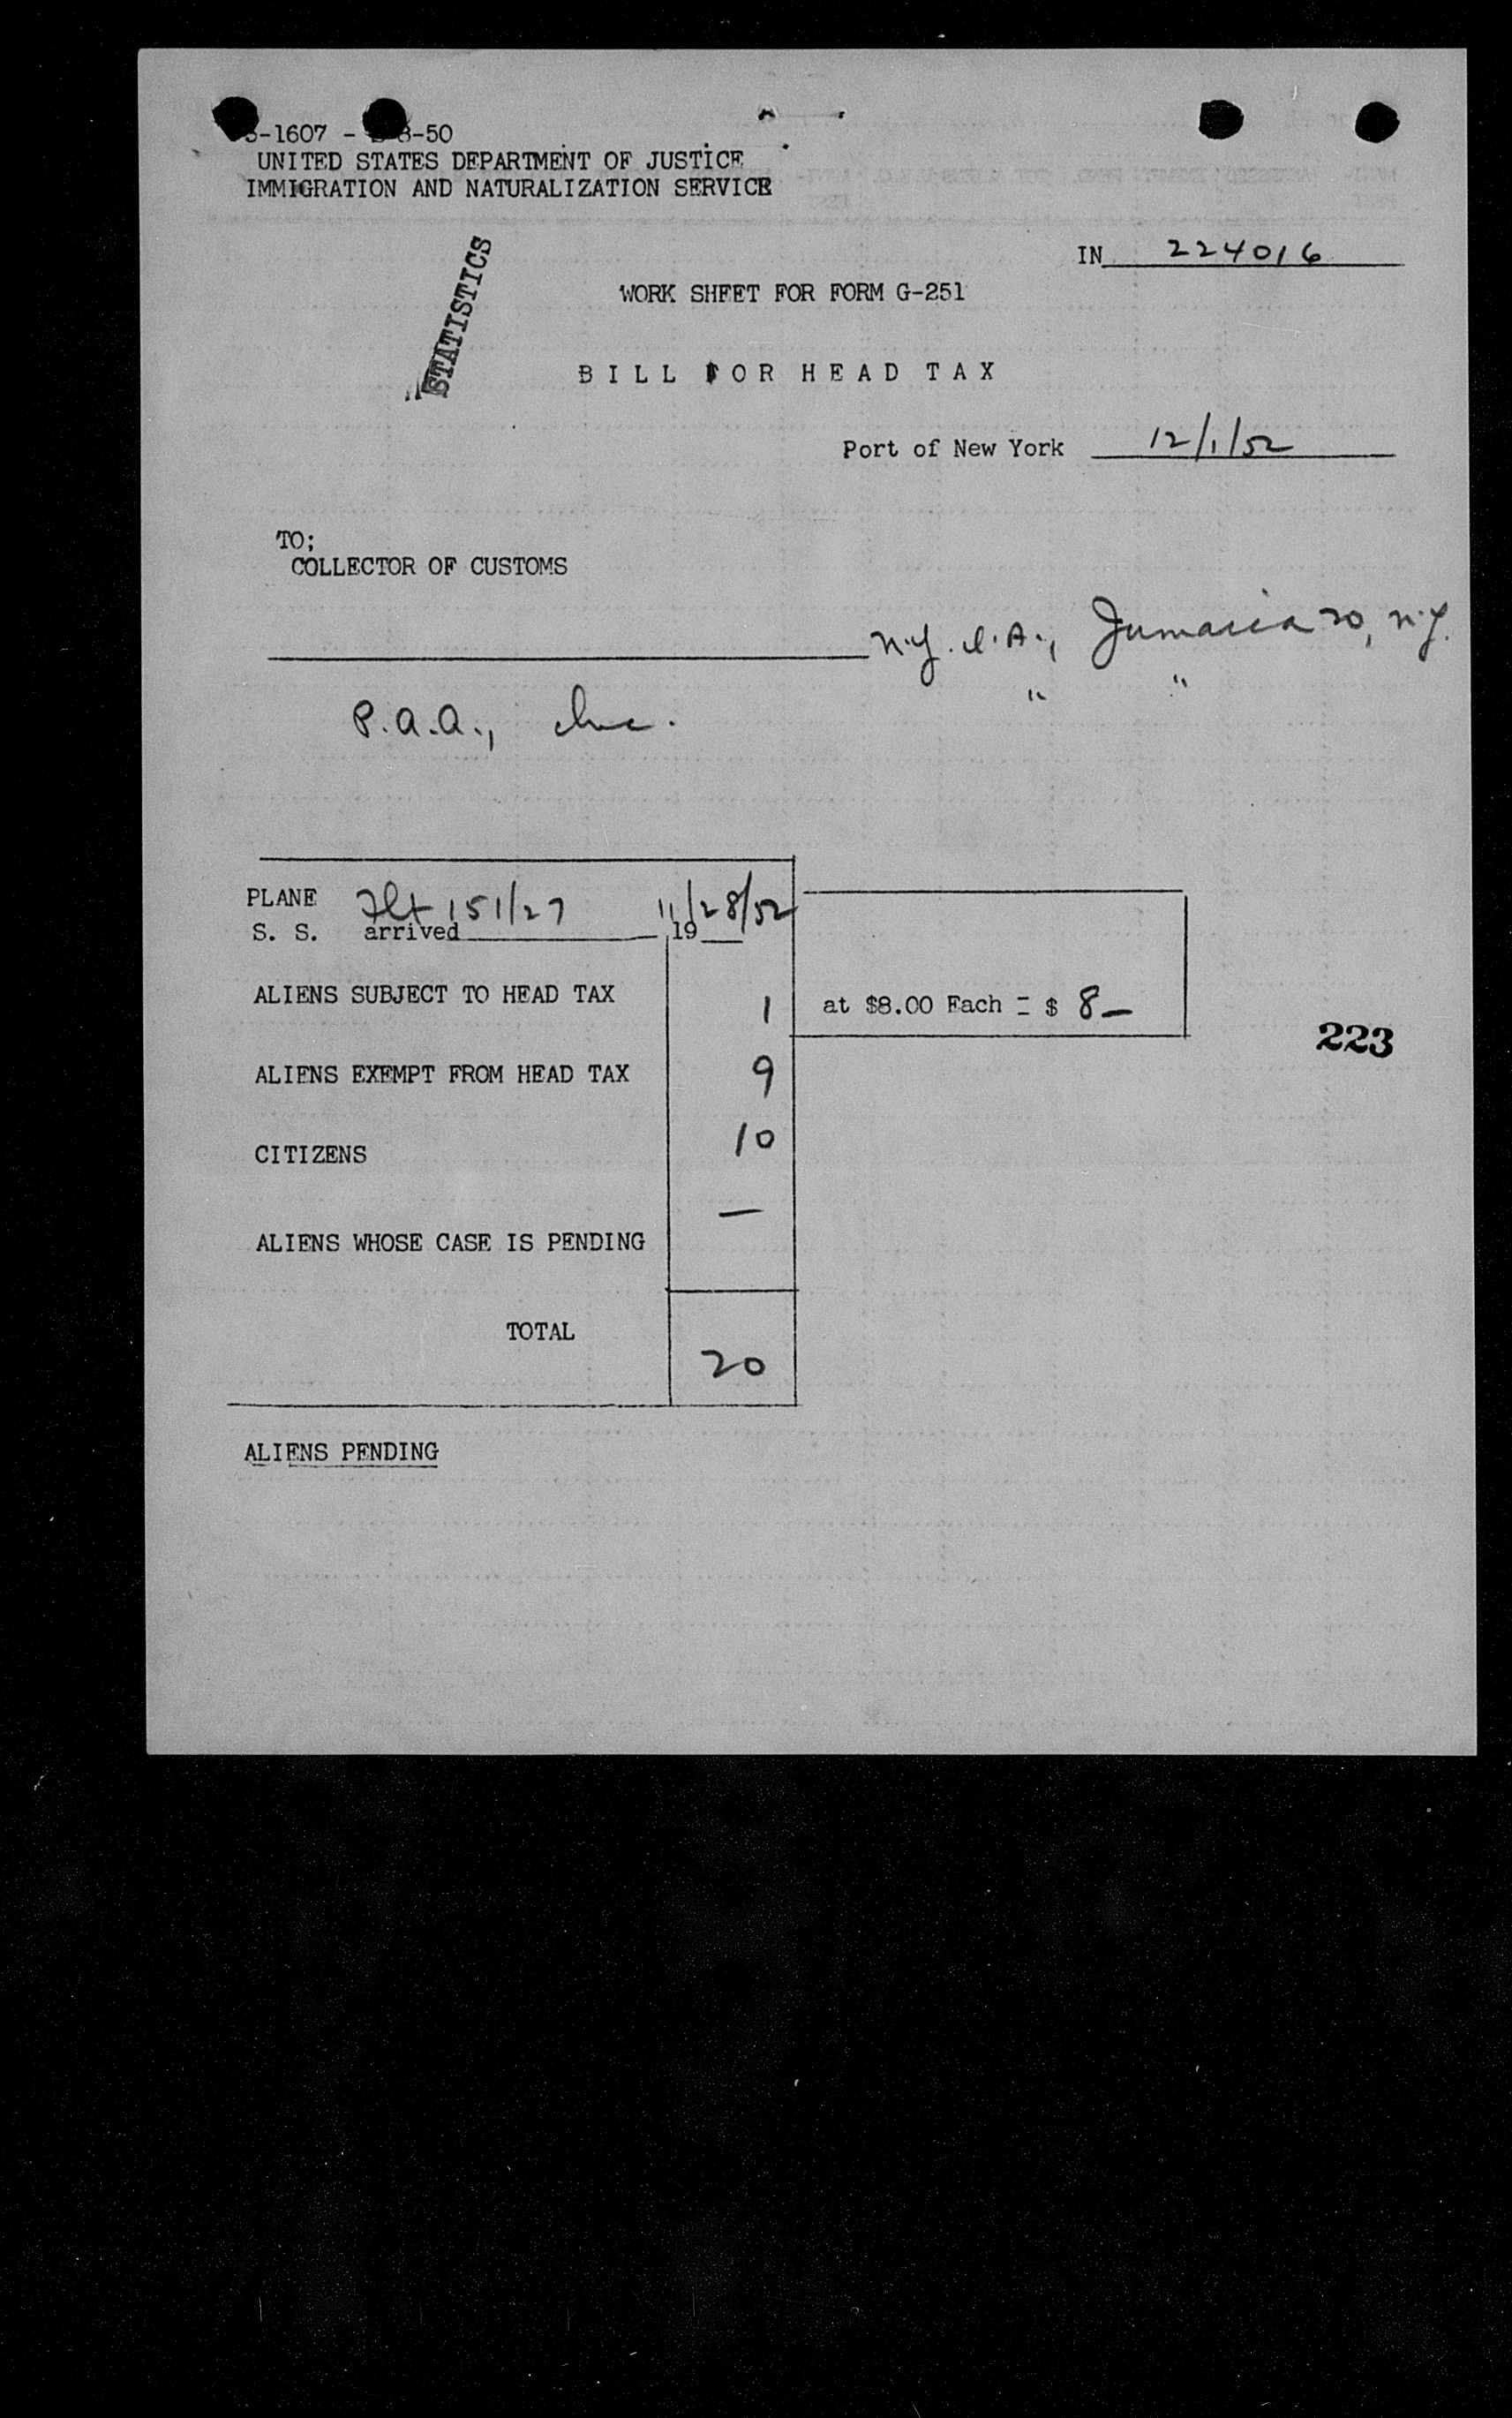 -1607 - -50
UNITED STATES DEPARTMENT OF JUSTICE
IMMIGRATION AND NATURALIZATION SERVICE
STATISTICS
IN 224016
WORK SHEET FOR FORM G-251
BILL FOR HEAD TAX
Port of New York 12/1/52
TO;
COLLECTOR OF CUSTOMS
N.Y. I.A., Jamaica 20, N.Y.
" "
P.A.A., Inc.
PLANE Flt 151/27 11/28/52
S. S. arrived 19
ALIENS SUBJECT TO HEAD TAX 1 at $8.00 Each = $ 8—
223
ALIENS EXEMPT FROM HEAD TAX 9
CITIZENS 10
ALIENS WHOSE CASE IS PENDING —
TOTAL 20
ALIENS PENDING